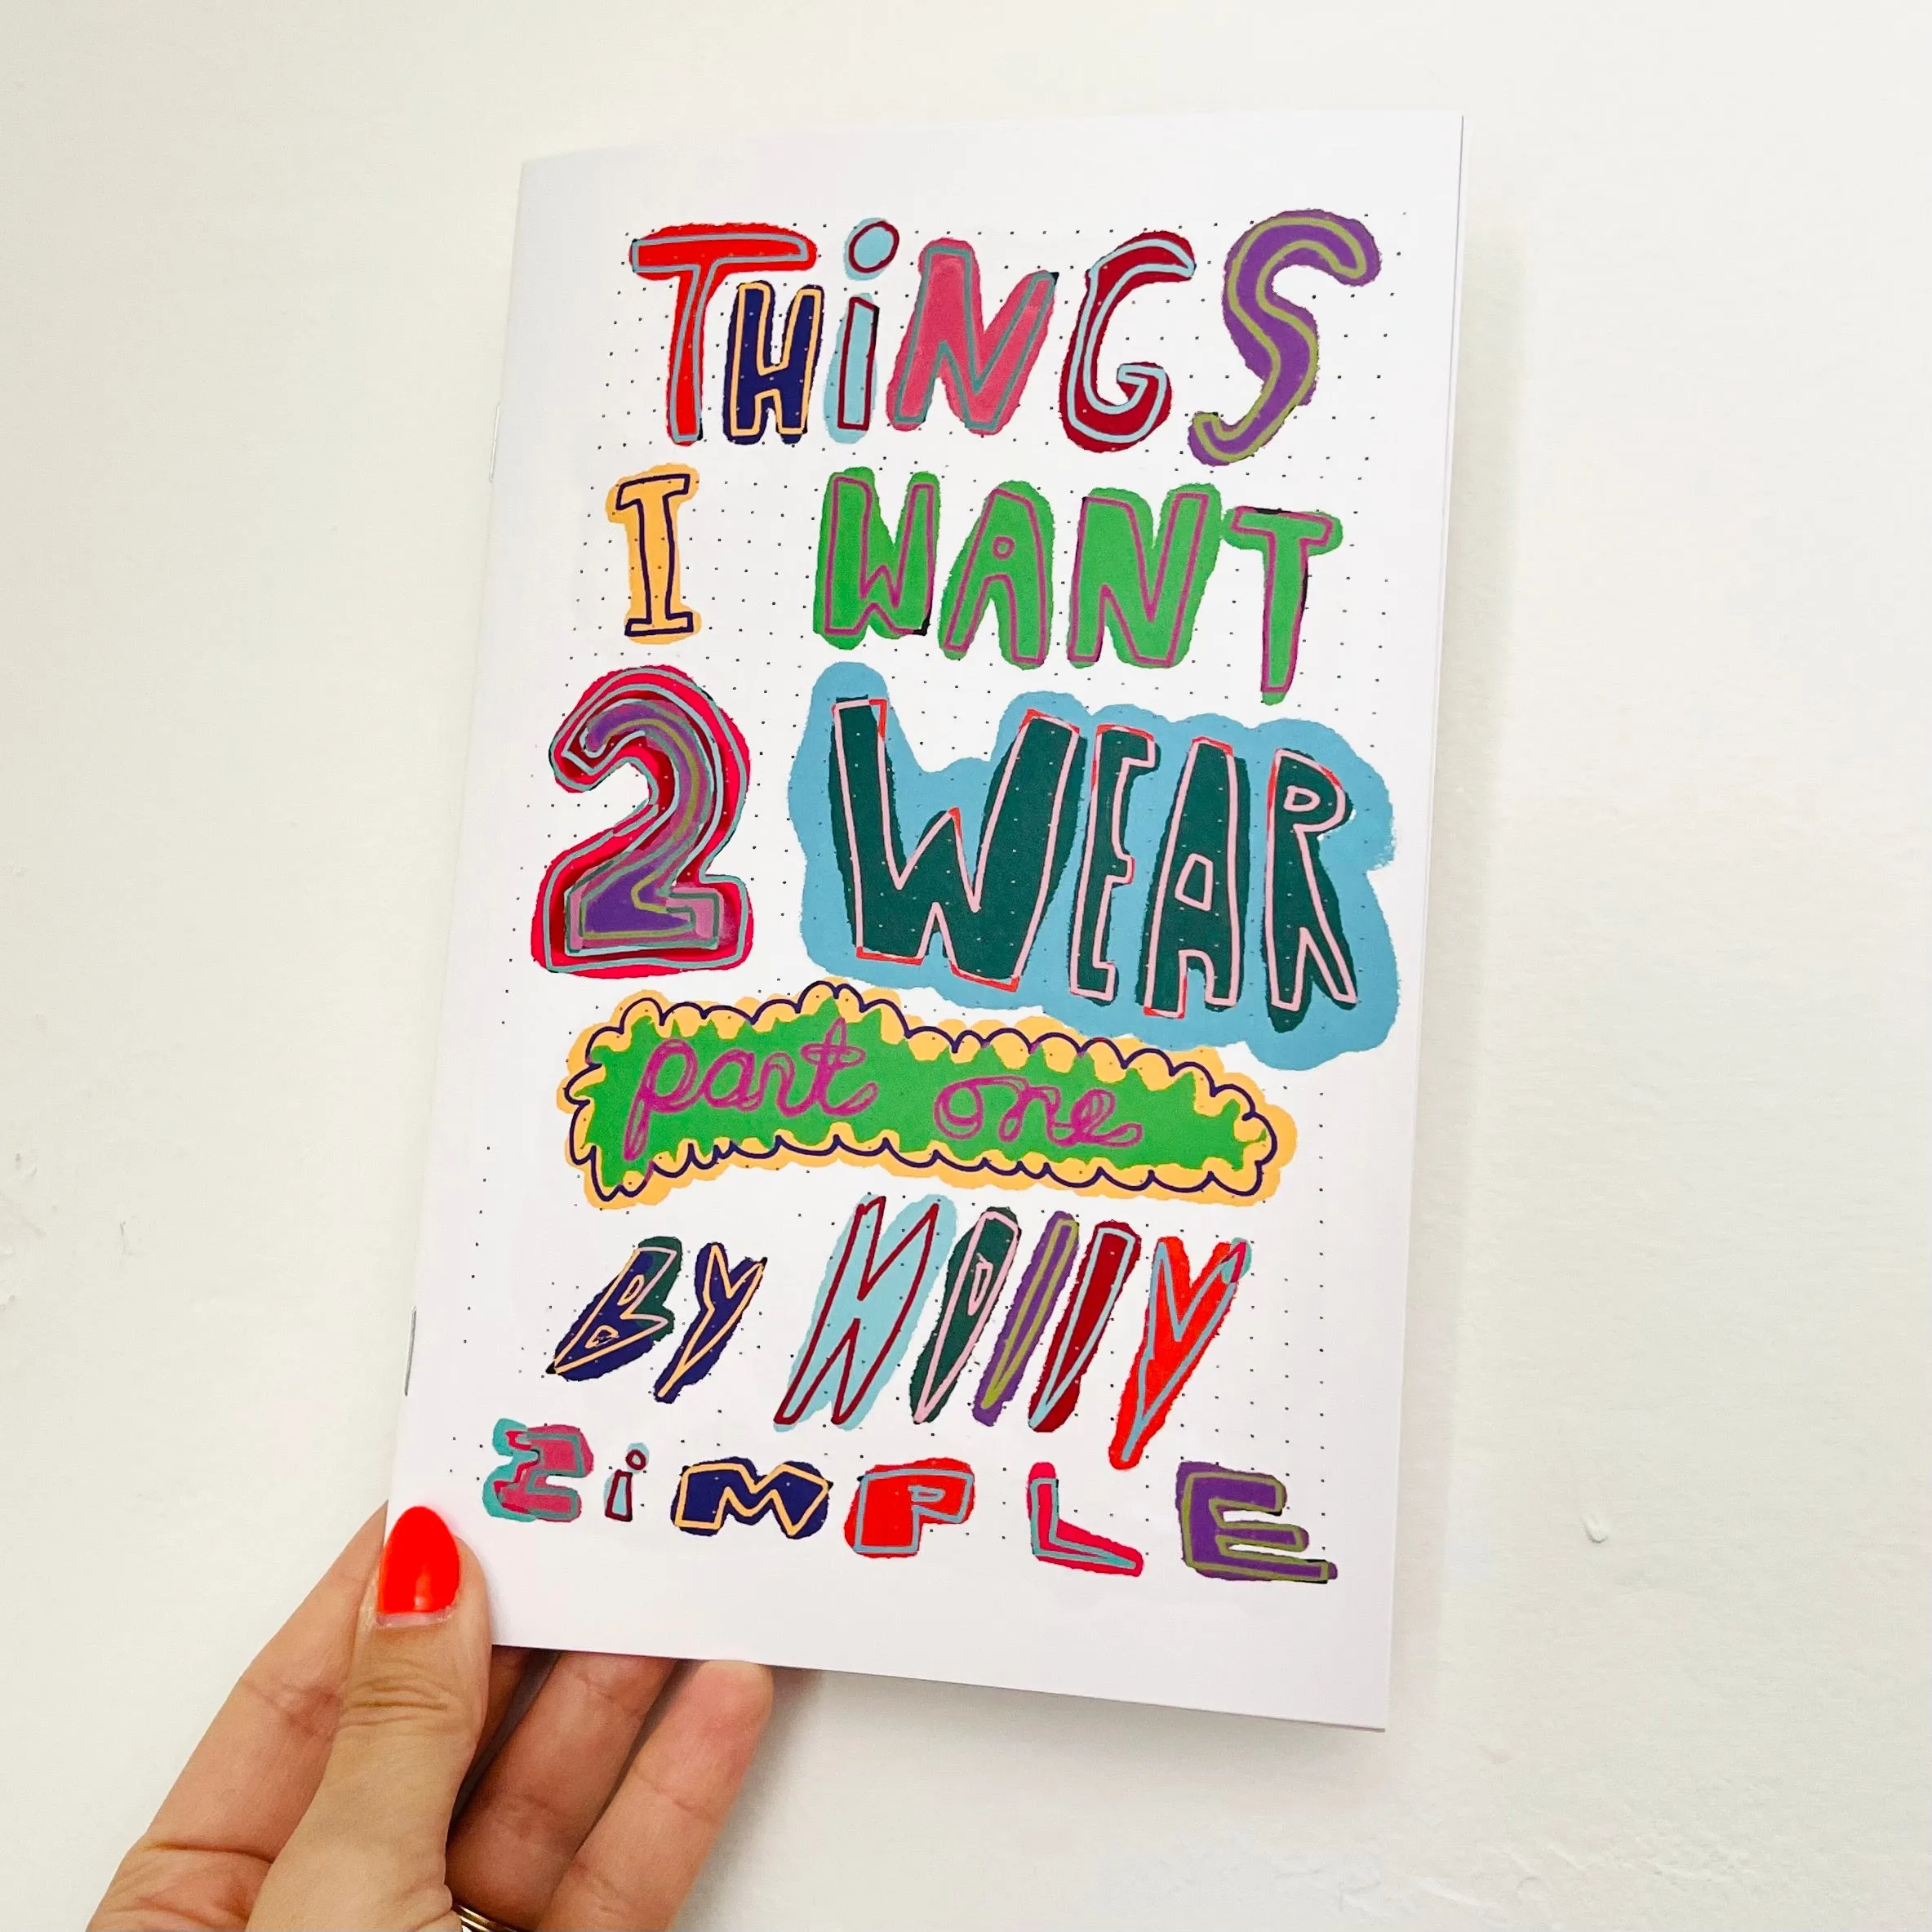 THiNGS
I WANT
2 WEAR
part one
BY HOLLY
ZiMPLE